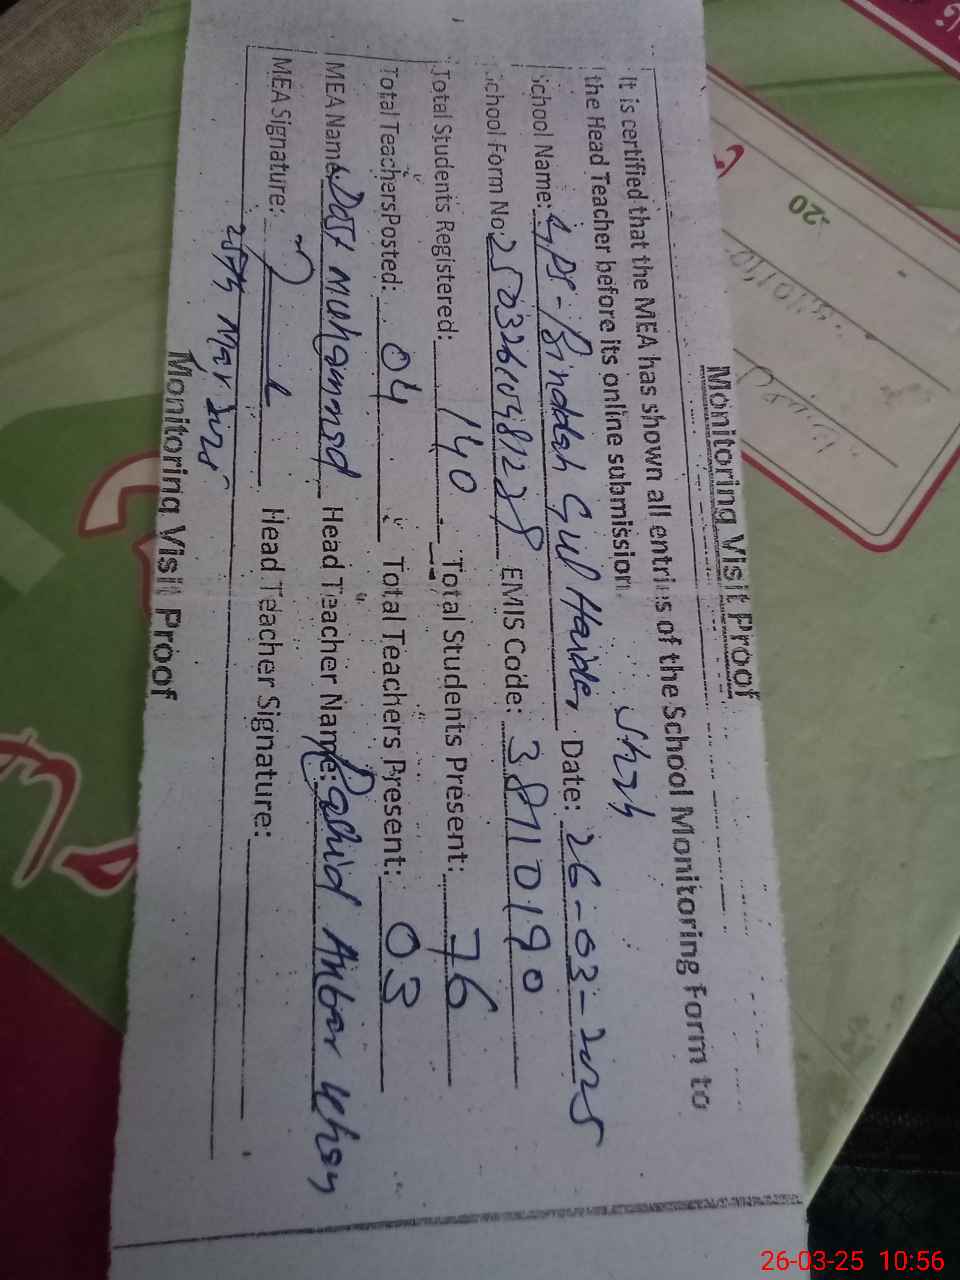 Monitoring Visit Proof
It is certified that the MEA has shown all entries of the School Monitoring Form to
the Head Teacher before its online submission.
Shah
School Name: GPS-Pinddah Gul Haider Date: 26-03-2025
School Form No: EMIS Code: 38110190
Total Students Registered: 140 Total Students Present: 76
Total Teachers Posted: 04 Total Teachers Present: 03
MEA Name: Dost Muhammad Head Teacher Name: Rashid Akbar Khan
MEA Signature: Head Teacher Signature:
25th Mar 2025
Monitoring Visit Proof
-20
26-03-25 10:56